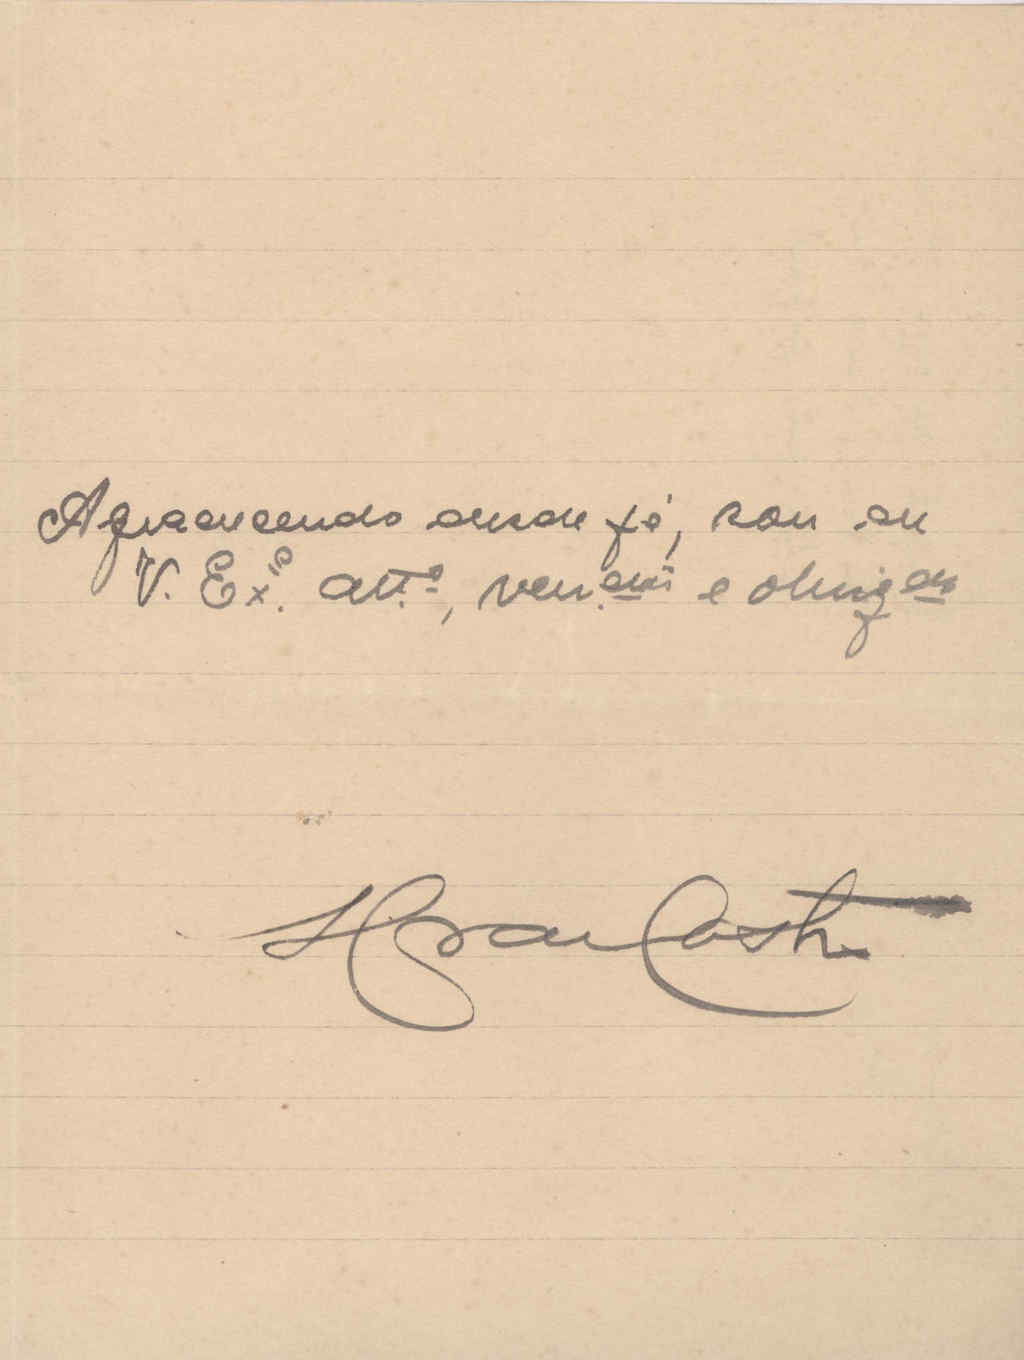 Agradecendo desde já, sou de
V. Ex.ª att.º, ven.dor e obrig.do
Castro